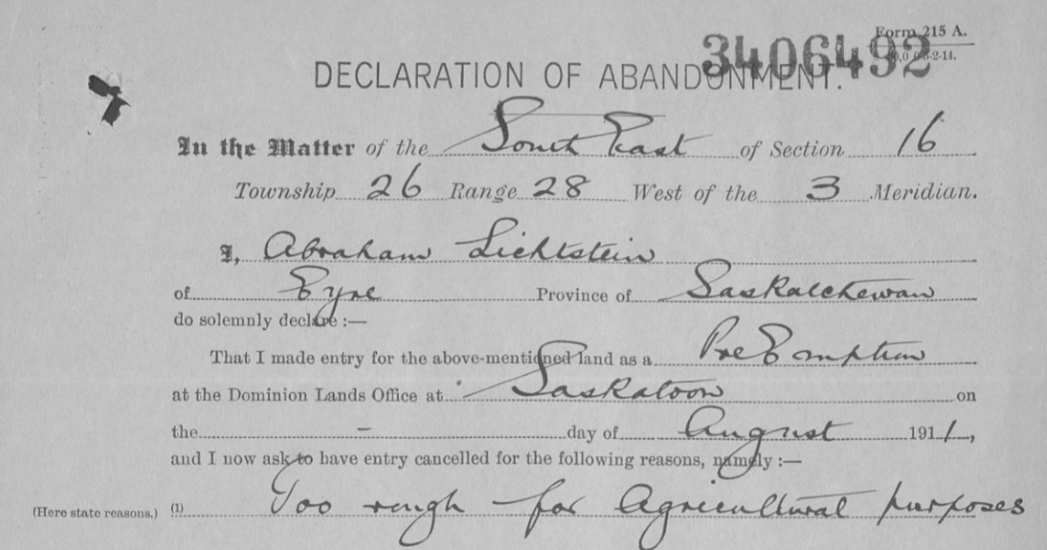 Form 215 A.
3406492
DECLARATION OF ABANDONMENT.
In the Matter of the South East of Section 16
Township 26 Range 28 West of the 3 Meridian.
I, Abraham Lichtstein
of Eyre Province of Saskatchewan
do solemnly declare :—
That I made entry for the above-mentioned land as a Pre Emption
at the Dominion Lands Office at Saskatoon on
the - day of August 1911,
and I now ask to have entry cancelled for the following reasons, namely :—
(Here state reasons.) (1) Too rough for Agricultural purposes